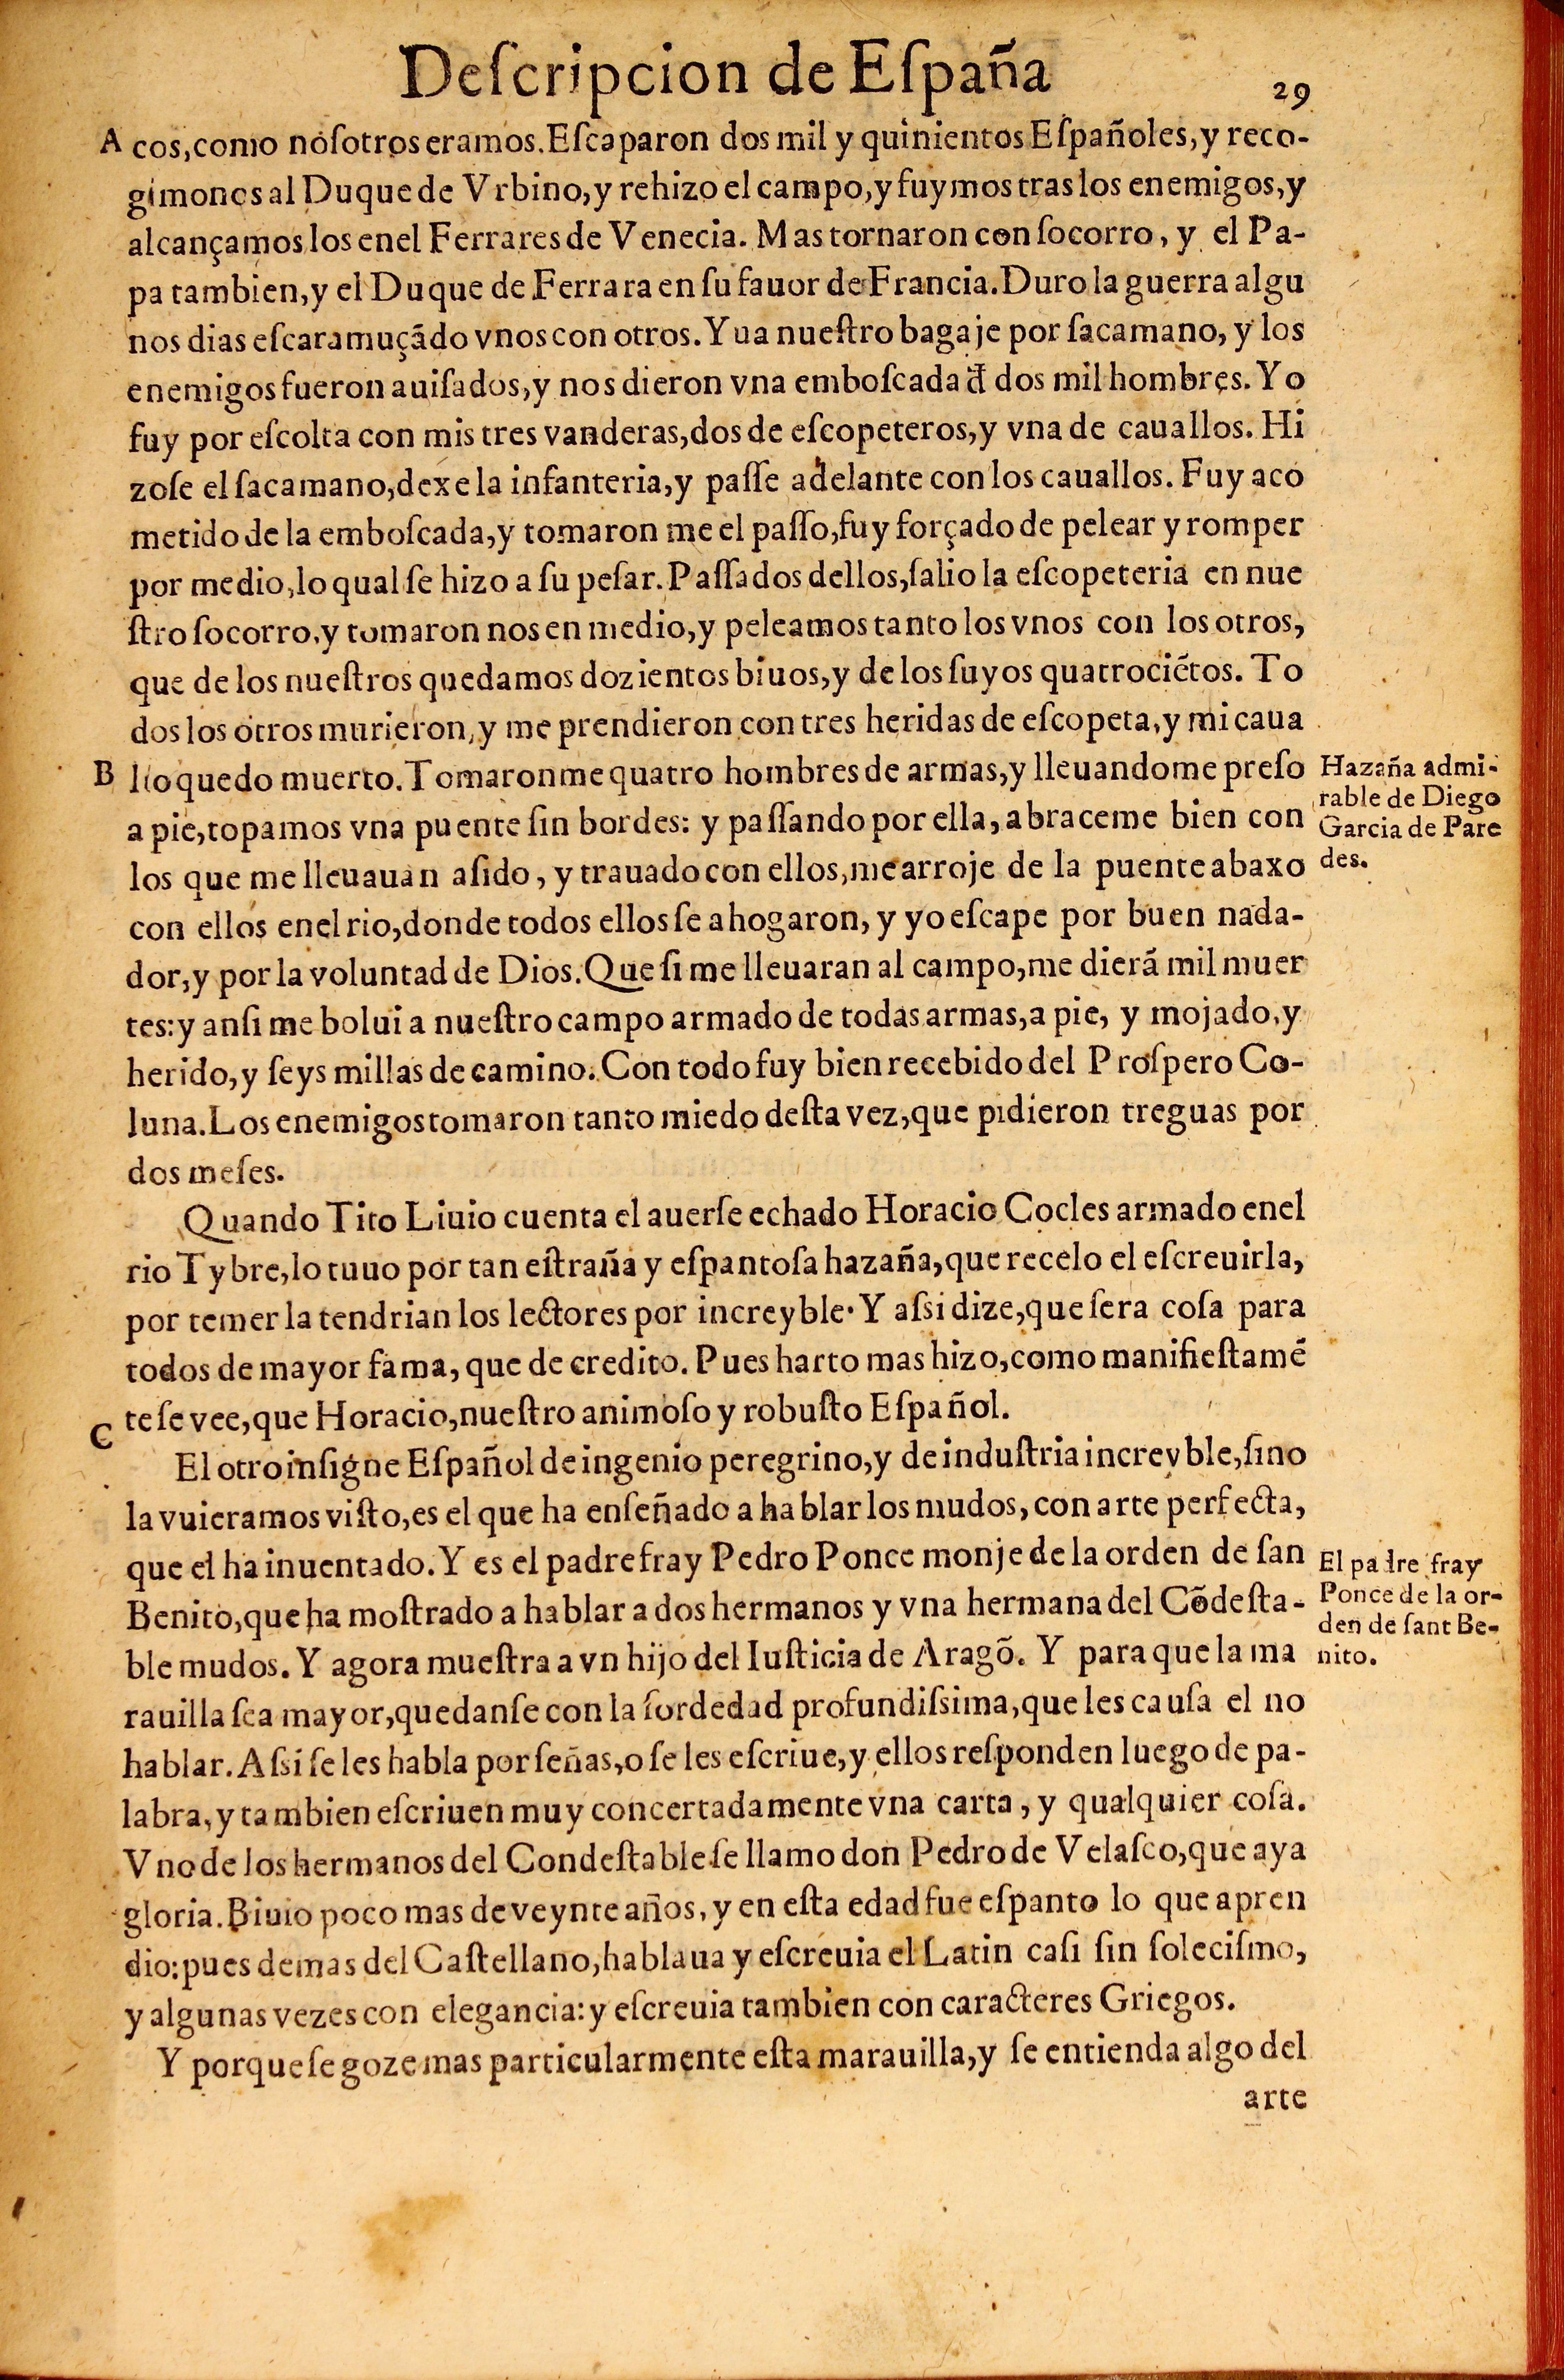 Deſcripcion de Eſpaña
29
A cos, como noſotros eramos. Eſcaparon dos mil y quinientos Eſpañoles, y reco-
gimonos al Duque de Vrbino, y rehizo el campo, y fuymos tras los enemigos, y
alcançamos los enel Ferrares de Venecia. Mas tornaron con ſocorro, y el Pa-
pa tambien, y el Duque de Ferrara en ſu fauor de Francia. Duro la guerra algu
nos dias eſcaramuçãdo vnos con otros. Yua nueſtro bagaje por ſacamano, y los
enemigos fueron auiſados, y nos dieron vna emboſcada đ dos mil hombres. Yo
fuy por eſcolta con mis tres vanderas, dos de eſcopeteros, y vna de cauallos. Hi
zoſe el ſacamano, dexe la infanteria, y paſſe adelante con los cauallos. Fuy aco
metido de la emboſcada, y tomaron me el paſſo, fuy forçado de pelear y romper
por medio, lo qual ſe hizo a ſu peſar. Paſſados dellos, ſalio la eſcopeteria en nue
ſtro ſocorro, y tomaron nos en medio, y peleamos tanto los vnos con los otros,
que de los nueſtros quedamos dozientos biuos, y de los ſuyos quatrociẽtos. To
dos los otros murieron, y me prendieron con tres heridas de eſcopeta, y mi caua
B llo quedo muerto. Tomaronme quatro hombres de armas, y lleuandome preſo
a pie, topamos vna puente ſin bordes: y paſſando por ella, abraceme bien con
los que me lleuauan aſido, y trauado con ellos, me arroje de la puente abaxo
con ellos enel rio, donde todos ellos ſe ahogaron, y yo eſcape por buen nada-
dor, y por la voluntad de Dios. Que ſi me lleuaran al campo, me dierã mil muer
tes: y anſi me bolui a nueſtro campo armado de todas armas, a pie, y mojado, y
herido, y ſeys millas de camino. Con todo fuy bien recebido del Proſpero Co-
luna. Los enemigos tomaron tanto miedo deſta vez, que pidieron treguas por
dos meſes.
Hazaña admi-
rable de Diego
Garcia de Pare
des.
Quando Tito Liuio cuenta el auerſe echado Horacio Cocles armado enel
rio Tybre, lo tuuo por tan eſtraña y eſpantoſa hazaña, que recelo el eſcreuirla,
por temer la tendrian los lectores por increyble. Y aſsi dize, que ſera coſa para
todos de mayor fama, que de credito. Pues harto mas hizo, como manifieſtamẽ
C te ſe vee, que Horacio, nueſtro animoſo y robuſto Eſpañol.
El otro inſigne Eſpañol de ingenio peregrino, y de induſtria increyble, ſino
la vuieramos viſto, es el que ha enſeñado a hablar los mudos, con arte perfecta,
que el ha inuentado. Y es el padre fray Pedro Ponce monje de la orden de ſan
Benito, que ha moſtrado a hablar a dos hermanos y vna hermana del Cõdeſta-
ble mudos. Y agora mueſtra a vn hijo del Iuſticia de Aragõ. Y para que la ma
rauilla ſea mayor, quedanſe con la ſordedad profundiſsima, que les cauſa el no
hablar. Aſsi ſe les habla por ſeñas, o ſe les eſcriue, y ellos reſponden luego de pa-
labra, y tambien eſcriuen muy concertadamente vna carta, y qualquier coſa.
Vno de los hermanos del Condeſtable ſe llamo don Pedro de Velaſco, que aya
gloria. Biuio poco mas de veynte años, y en eſta edad fue eſpanto lo que apren
dio: pues demas del Caſtellano, hablaua y eſcreuia el Latin caſi ſin ſoleciſmo,
y algunas vezes con elegancia: y eſcreuia tambien con caracteres Griegos.
Y porque ſe goze mas particularmente eſta marauilla, y ſe entienda algo del
arte
El padre fray
Ponce de la or-
den de ſant Be-
nito.